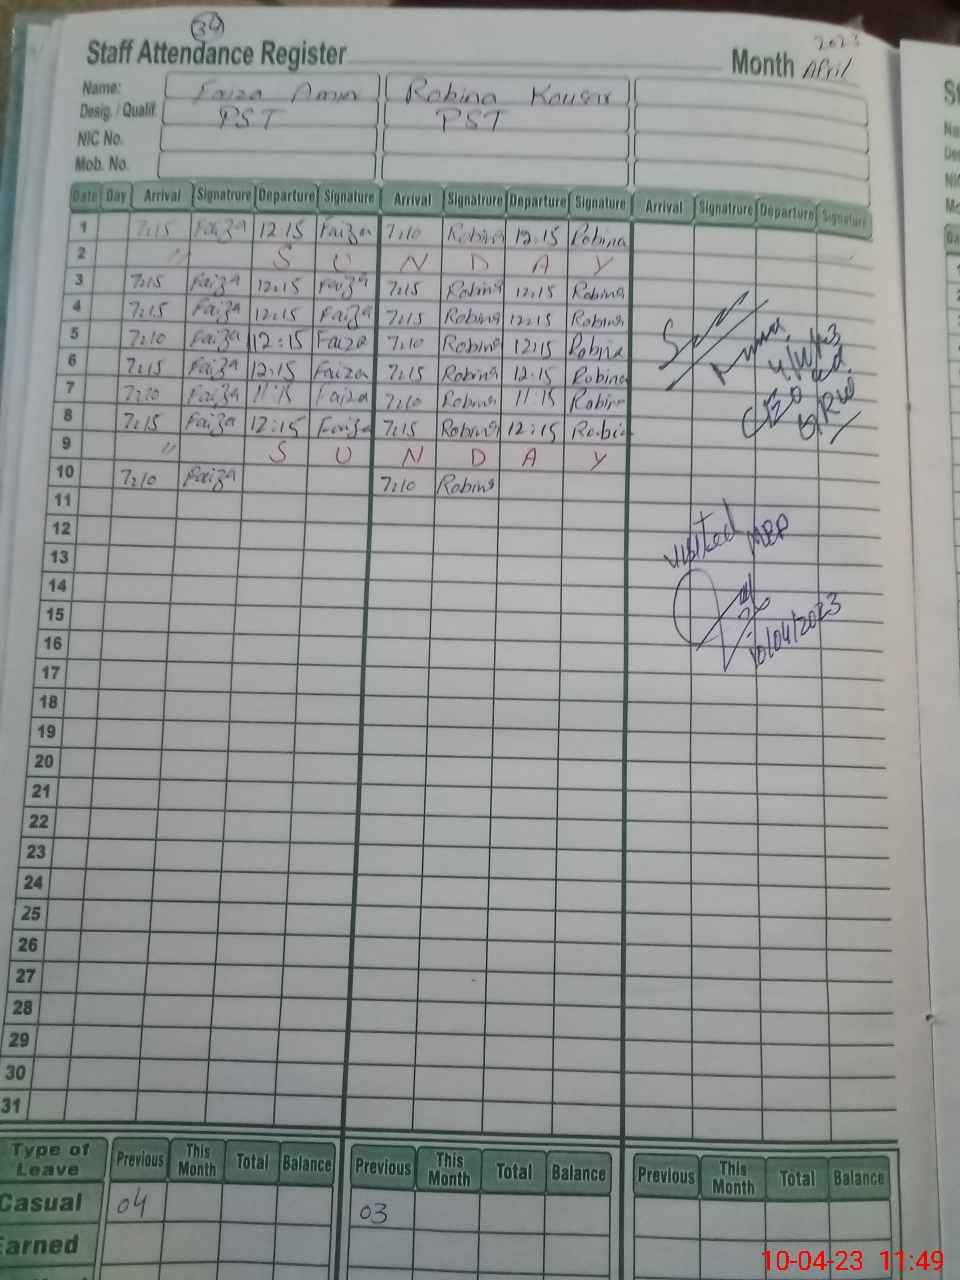 34
2023
Staff Attendance Register Month April
Name: Faiza Amin Robina Kousar
Desig. / Qualif. PST PST
NIC No.
Mob. No.
Date Day Arrival Signatrure Departure Signature Arrival Signatrure Departure Signature Arrival Signatrure Departure Signature
1 7:15 Faiza 12:15 Faiza 7:10 Robina 12:15 Robina
2 " S U N D A Y
3 7:15 Faiza 12:15 Faiza 7:15 Robina 12:15 Robina
4 7:15 Faiza 12:15 Faiza 7:15 Robina 12:15 Robina
5 7:10 Faiza 12:15 Faiza 7:10 Robina 12:15 Robina
6 7:15 Faiza 12:15 Faiza 7:15 Robina 12:15 Robina
7 7:10 Faiza 11:15 Faiza 7:10 Robina 11:15 Robina
8 7:15 Faiza 12:15 Faiza 7:15 Robina 12:15 Robina
9 " S U N D A Y
10 7:10 Faiza 7:10 Robina
CEO
11
12
visited
13
14
15
10/04/2023
16
17
18
19
20
21
22
23
24
25
26
27
28
29
30
31
Type of Leave Previous This Month Total Balance Previous This Month Total Balance Previous This Month Total Balance
Casual 04 03
Earned
10-04-23 11:49